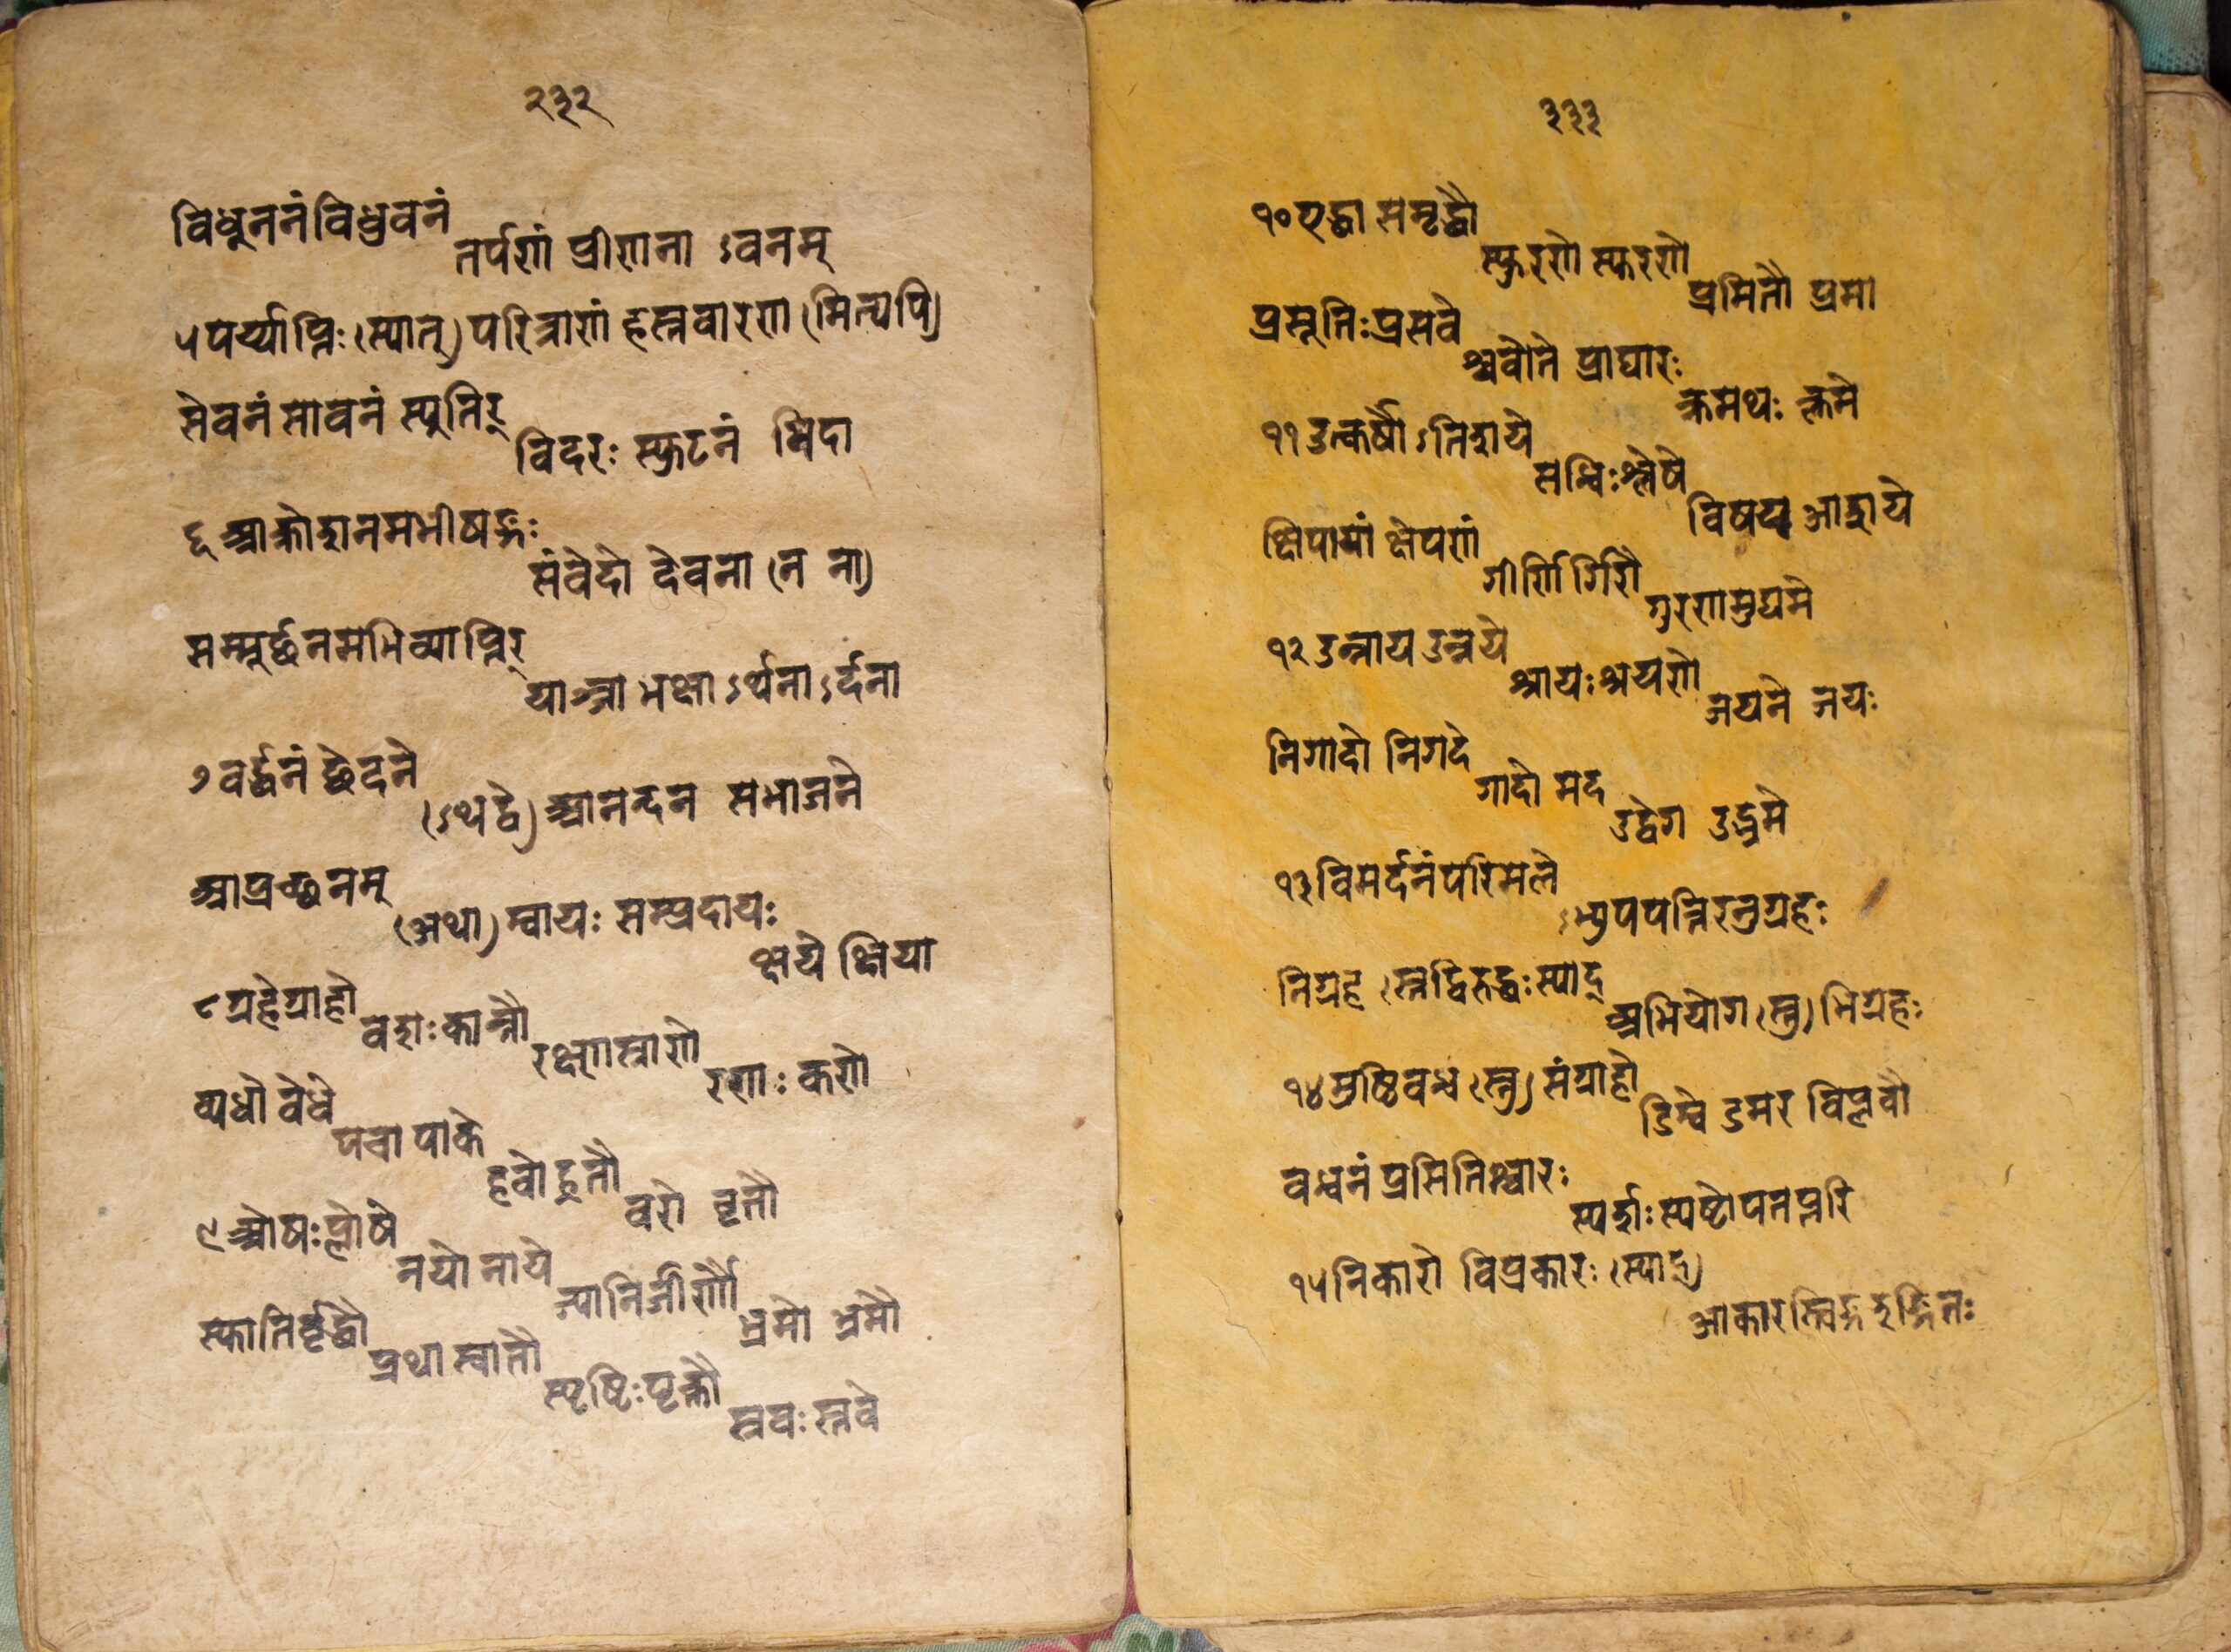 २३२
विधुननं विधुवनं
तर्पणां प्रीणाना ऽवनम्
५ पर्य्याप्तिः (स्यात्) परित्राणां हस्तवारणा (मित्यपि)
सेवनं सोवनं स्यूतिर्
विदरः स्फुटनं भिदा
६ आक्रोशनमभीषङ्गः
संवेदो वेदना (न ना)
सम्मूर्छनमभिव्याप्तिर्
याञ्चा भक्षा ऽर्थना ऽर्दना
७ वर्द्धनं छेदने
(ऽथ द्वे) आनन्दन सभाजने
आप्रच्छनम्
(अथा) म्नायः सम्प्रदायः
क्षये क्षिया
८ ग्रहे ग्राहो
वशः कान्तौ
रक्ष्णास्त्राणो
रणाः कणो
व्यधो वेधे
पचा पाके
हवो हूतौ
वरो वृतौ
९ ओषः प्लोषे
नयो नाये
ज्यानिर्जीर्णौ
भ्रमो भ्रमौ
स्फातिर्वृद्धौ
प्रथा ख्यातौ
स्पृष्टिः पृक्तौ
स्नवः स्रवे
३३३
१० एद्धा समृद्धौ
स्फुरणो स्फरणो
प्रमितौ प्रमा
प्रसूतिः प्रसवे
श्च्योते प्राघारः
क्लमथः क्लमे
११ उत्कर्षो ऽतिशये
सन्धिः श्लेषे
विषय आशये
क्षिपायां क्षेपणां
गीर्णि गिरौ
गुरणामुद्यमे
१२ उन्नाय उन्नये
श्रायः श्रयणो
जयने जयः
निगादो निगदे
मादो मद
उद्वेग उद्भ्रमे
१३ विमर्दनं परिमलो
ऽभ्युपपत्तिरनुग्रहः
निग्रह (स्तद्विरुद्धः स्याद्
अभियोग (स्तु) भिग्रहः
१४ मुष्टिबन्ध (स्तु) संग्राहो
डिम्बे डमर विप्लवौ
बन्धनं प्रसितिश्चारः
स्पर्शः स्पष्टोपतप्तरि
१५ निकारो विप्रकारः (स्याद्)
आकारस्त्विङ्ग इङ्गितः